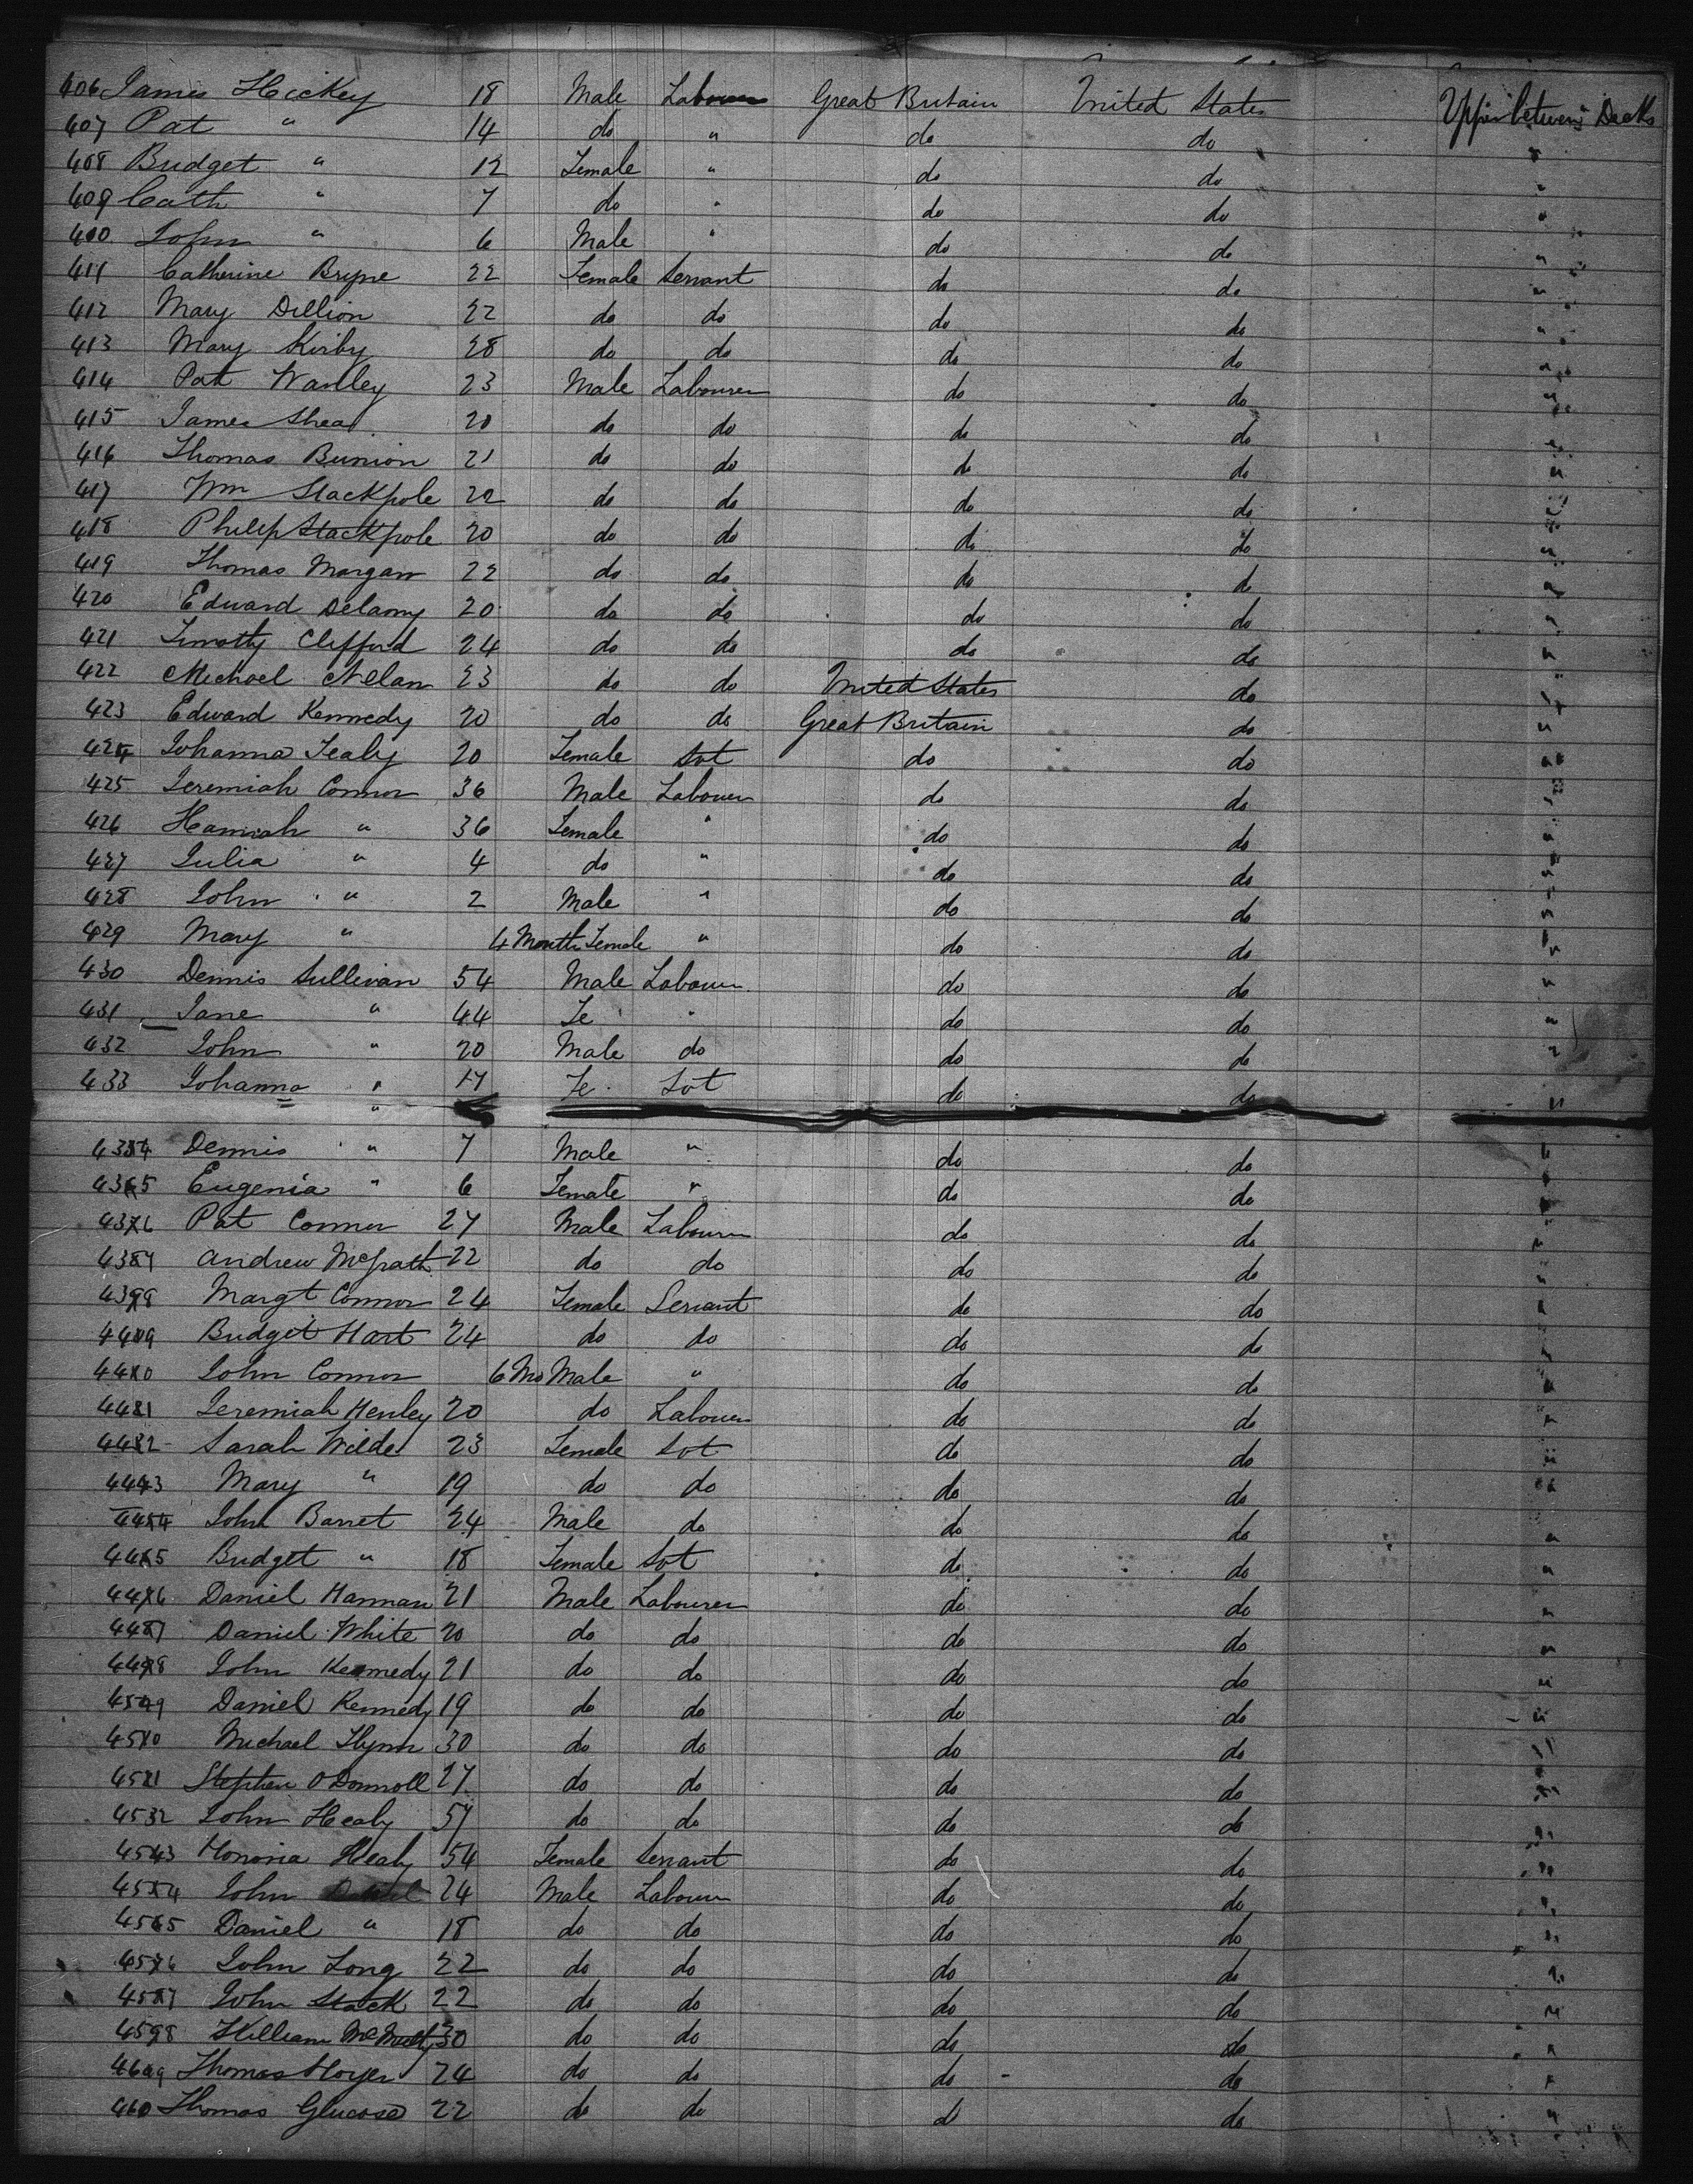 406 James Hickey 18 Male Labourer Great Britain United States Upper between Decks
407 Pat " 14 do " do do "
408 Bridget " 12 Female " do do "
409 Cath " 7 do " do do "
410 John " 6 Male " do do "
411 Catherine Bryne 22 Female Servant do do "
412 Mary Dillion 22 do do do do "
413 Mary Kirby 28 do do do do "
414 Pat Wanley 23 Male Labourer do do "
415 James Shea 20 do do do do "
416 Thomas Bunion 21 do do do do "
417 Wm Stackpole 22 do do do do "
418 Philip Stackpole 20 do do do do "
419 Thomas Morgan 22 do do do do "
420 Edward Delamy 20 do do do do "
421 Timothy Clifford 24 do do do do "
422 Michael Nelan 23 do do United States do "
423 Edward Kennedy 20 do do Great Britain do "
424 Johanna Fealy 20 Female Svt do do "
425 Jeremiah Connor 36 Male Labourer do do "
426 Hannah " 36 Female " do do "
427 Julia " 4 do " do do "
428 John " 2 Male " do do "
429 Mary " 4 Month Female " do do "
430 Dennis Sullivan 54 Male Labourer do do "
431 Jane " 44 Fe " do do "
432 John " 20 Male do do do "
433 Johanna " 17 Fe. Svt do do "
"
434 Dennis " 7 Male " do do "
435 Eugenia " 6 Female " do do "
436 Pat Connor 27 Male Labourer do do "
437 Andrew McGrath 22 do do do do "
438 Margt Connor 24 Female Servant do do "
439 Bridget Hart 24 do do do do "
440 John Connor 6 Mo Male " do do "
441 Jeremiah Henley 20 do Labourer do do "
442 Sarah Wilde 23 Female Svt do do "
443 Mary " 19 do do do do "
444 John Barret 24 Male do do do "
445 Bridget " 18 Female Svt do do "
446 Daniel Hannan 21 Male Labourer do do "
447 Daniel White 20 do do do do "
448 John Kennedy 21 do do do do "
449 Daniel Kennedy 19 do do do do "
450 Michael Flynn 30 do do do do "
451 Stephen O'Donnoll 27 do do do do "
452 John Healy 57 do do do do "
453 Honoria Healy 54 Female Servant do do "
454 John 24 Male Labourer do do "
455 Daniel " 18 do do do do "
456 John Long 22 do do do do "
457 John Stack 22 do do do do "
458 William 30 do do do do "
459 Thomas 24 do do do do "
460 Thomas Glucose 22 do do d do "